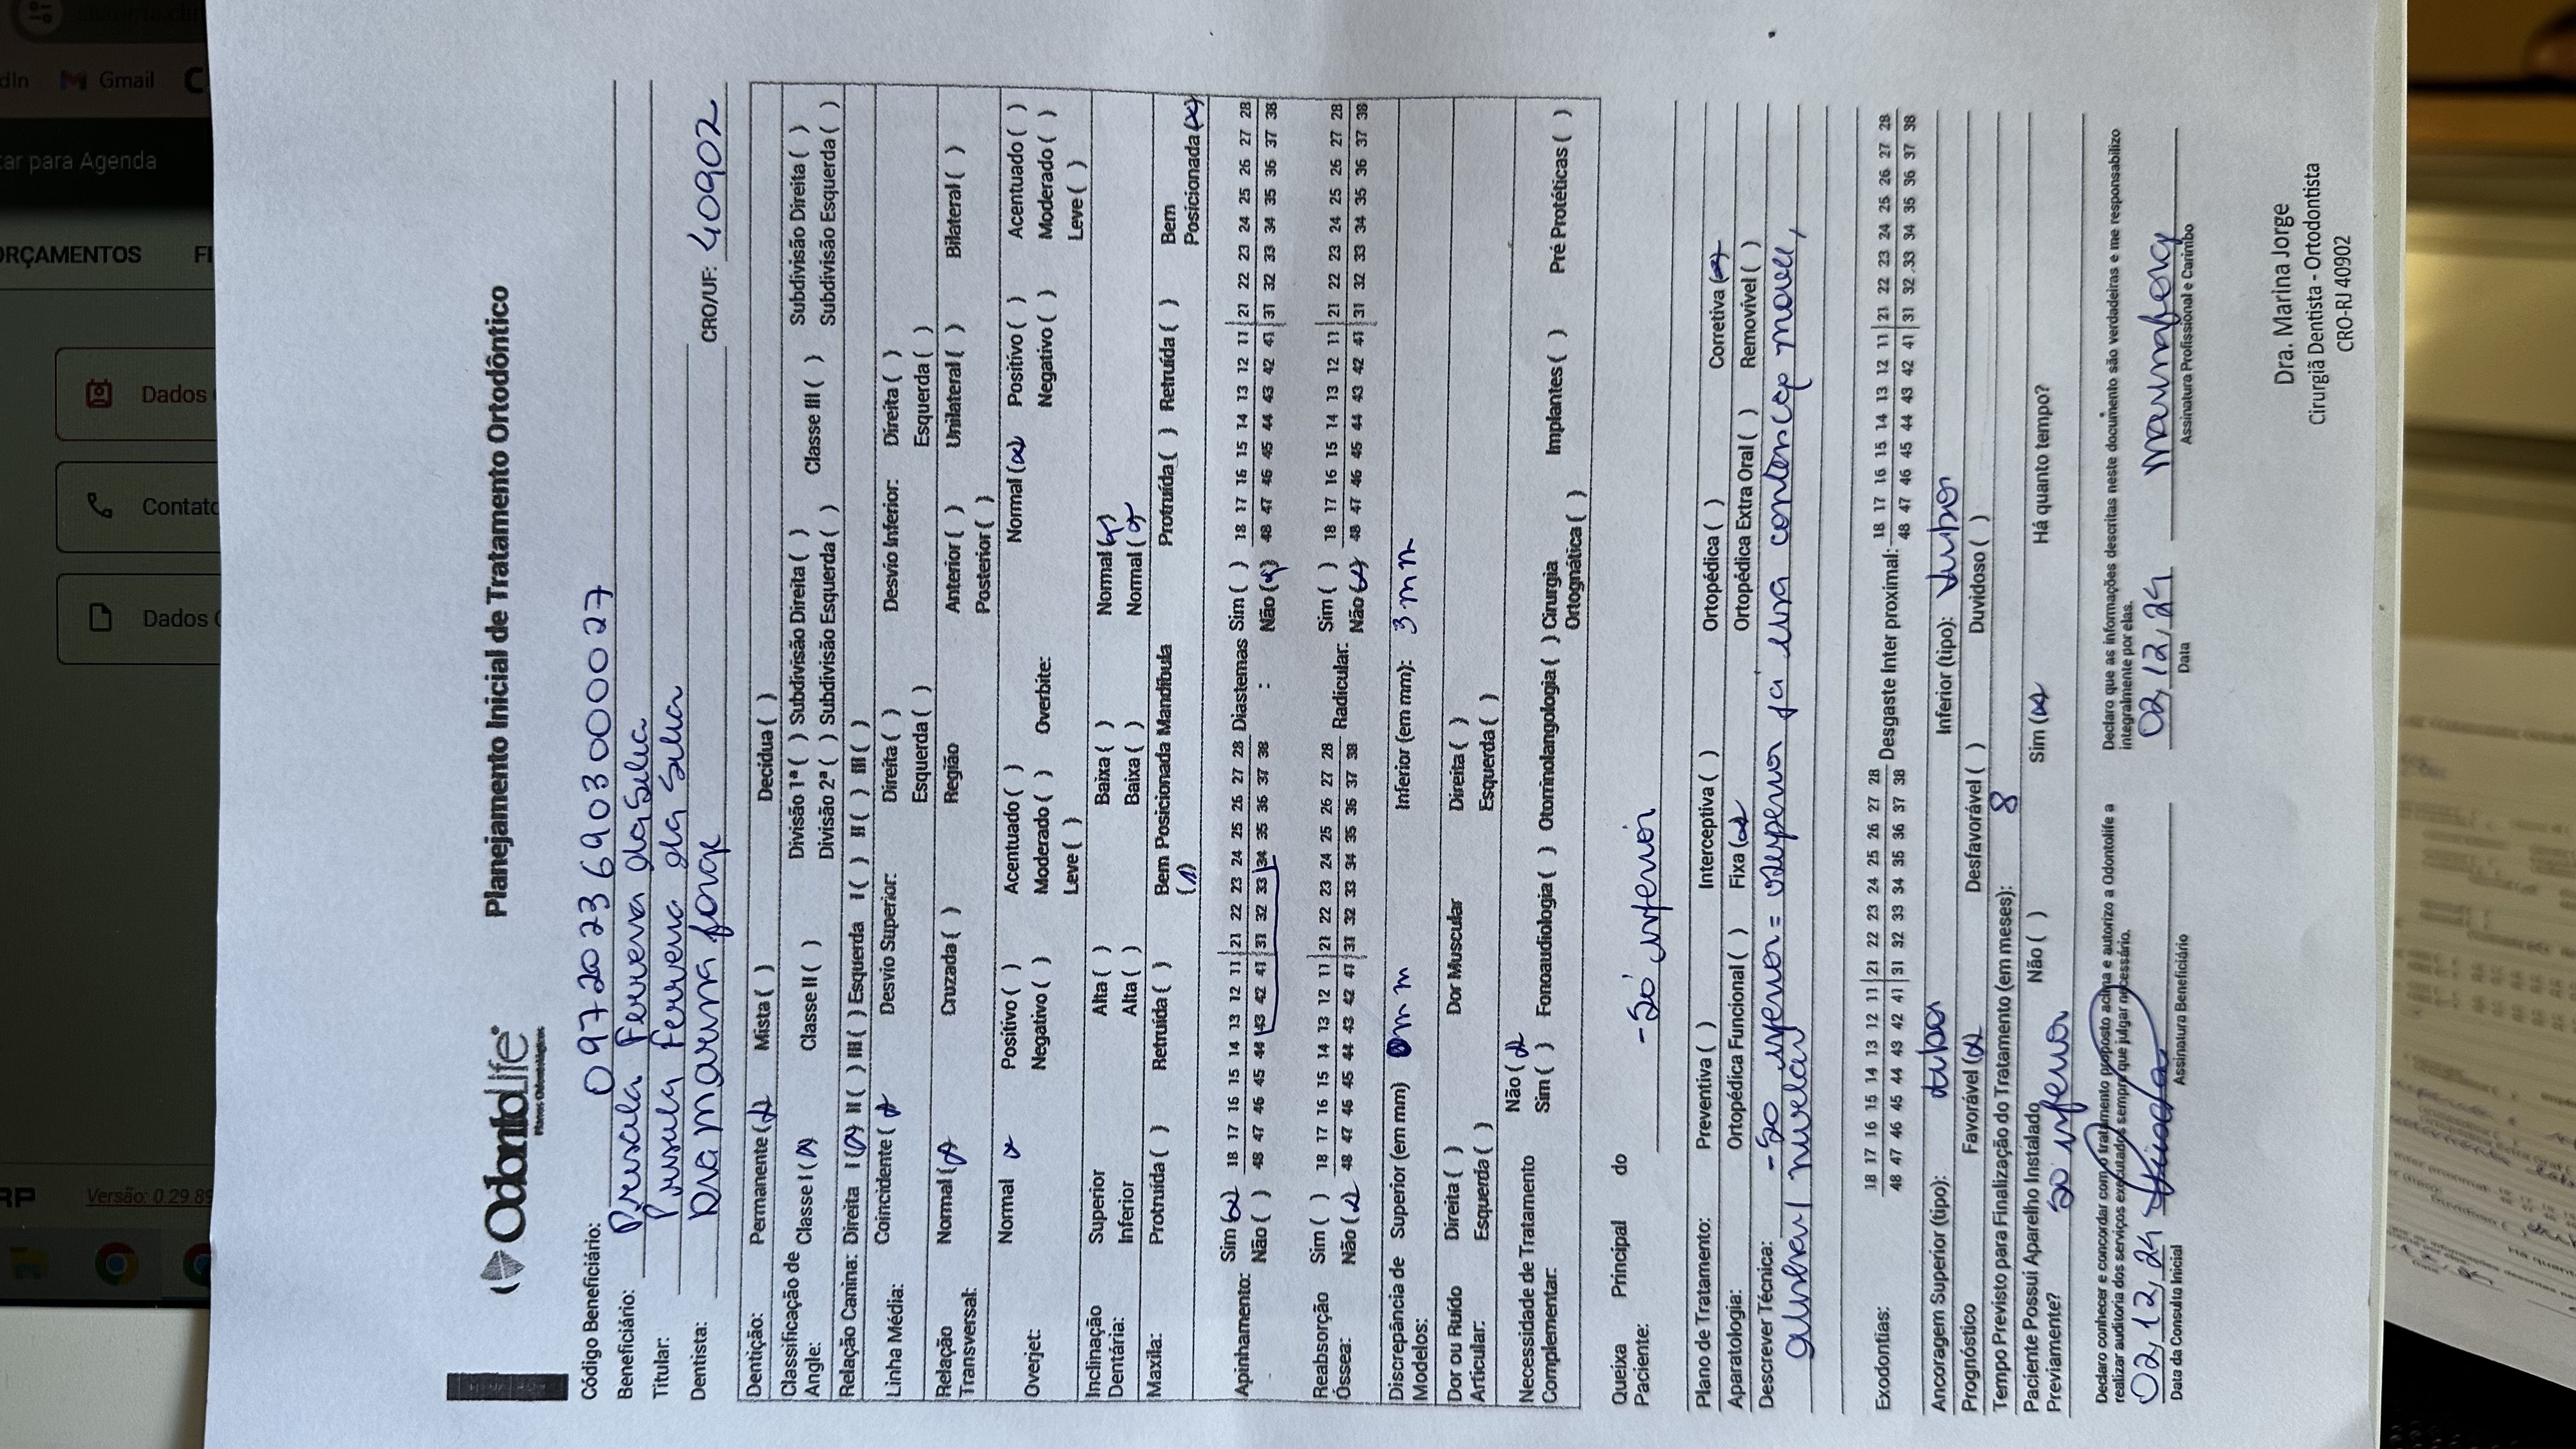 OdontoLife®
Planos Odontológicos
Planejamento Inicial de Tratamento Ortodôntico
Código Beneficiário: 0972023690300002 7
Beneficiário: Priscila Ferreira da Silva
Titular: Priscila Ferreira da Silva
Dentista: Dra Marina Jorge CRO/UF: 40902
Dentição: Permanente (x) Mista ( ) Decídua ( )
Classificação de Angle: Classe I (x) Classe II ( ) Divisão 1ª ( ) Subdivisão Direita ( ) Classe III ( ) Subdivisão Direita ( )
Divisão 2ª ( ) Subdivisão Esquerda ( ) Subdivisão Esquerda ( )
Relação Canina: Direita I (x) II ( ) III ( ) Esquerda I ( ) II ( ) III ( )
Linha Média: Coincidente (x) Desvio Superior: Direita ( ) Desvio Inferior: Direita ( )
Esquerda ( ) Esquerda ( )
Relação Transversal: Normal (x) Cruzada ( ) Região Anterior ( ) Unilateral ( ) Bilateral ( )
Posterior ( )
Overjet: Normal x Positivo ( ) Acentuado ( ) Overbite: Normal (x) Positivo ( ) Acentuado ( )
Negativo ( ) Moderado ( ) Negativo ( ) Moderado ( )
Leve ( ) Leve ( )
Inclinação Dentária: Superior Alta ( ) Baixa ( ) Normal (x)
Inferior Alta ( ) Baixa ( ) Normal (x)
Maxila: Protruída ( ) Retruída ( ) Bem Posicionada (x) Mandíbula Protruída ( ) Retruída ( ) Bem Posicionada (x)
Apinhamento: Sim (x) 18 17 16 15 14 13 12 11 21 22 23 24 25 26 27 28 Diastemas : Sim ( ) 18 17 16 15 14 13 12 11 21 22 23 24 25 26 27 28
Não ( ) 48 47 46 45 44 43 42 41 31 32 33 34 35 36 37 38 Não (x) 48 47 46 45 44 43 42 41 31 32 33 34 35 36 37 38
Reabsorção Óssea: Sim ( ) 18 17 16 15 14 13 12 11 21 22 23 24 25 26 27 28 Radicular: Sim ( ) 18 17 16 15 14 13 12 11 21 22 23 24 25 26 27 28
Não (x) 48 47 46 45 44 43 42 41 31 32 33 34 35 36 37 38 Não (x) 48 47 46 45 44 43 42 41 31 32 33 34 35 36 37 38
Discrepância de Modelos: Superior (em mm) 0mm Inferior (em mm): 3mm
Dor ou Ruído Articular: Direita ( ) Dor Muscular Direita ( )
Esquerda ( ) Esquerda ( )
Necessidade de Tratamento Complementar: Não (x)
Sim ( ) Fonoaudiologia ( ) Otorrinolangologia ( ) Cirurgia Ortognática ( ) Implantes ( ) Pré Protéticas ( )
Queixa Principal do Paciente: - Só inferior
Plano de Tratamento: Preventiva ( ) Interceptiva ( ) Ortopédica ( ) Corretiva (x)
Aparatologia: Ortopédica Funcional ( ) Fixa (x) Ortopédica Extra Oral ( ) Removível ( )
Descrever Técnica: - Só inferior = superior já usa contenção móvel,
alinhar / nivelar
Exodontias: 18 17 16 15 14 13 12 11 21 22 23 24 25 26 27 28 Desgaste Inter proximal: 18 17 16 15 14 13 12 11 21 22 23 24 25 26 27 28
48 47 46 45 44 43 42 41 31 32 33 34 35 36 37 38 48 47 46 45 44 43 42 41 31 32 33 34 35 36 37 38
Ancoragem Superior (tipo): tubos Inferior (tipo): tubos
Prognóstico Favorável (x) Desfavorável ( ) Duvidoso ( )
Tempo Previsto para Finalização do Tratamento (em meses): 8
Paciente Possui Aparelho Instalado Previamente? Não ( ) Sim (x) Há quanto tempo?
só inferior
Declaro conhecer e concordar com o tratamento proposto acima e autorizo a Odontolife a realizar auditoria dos serviços executados sempre que julgar necessário.
Declaro que as informações descritas neste documento são verdadeiras e me responsabilizo integralmente por elas.
02, 12, 24 02, 12, 24 Marina Jorge
Data da Consulta Inicial Assinatura Beneficiário Data Assinatura Profissional e Carimbo
Dra. Marina Jorge
Cirurgiã Dentista - Ortodontista
CRO-RJ 40902
Gmail
tar para Agenda
ORÇAMENTOS
Dados
Contato
Dados
Versão: 0.29.89